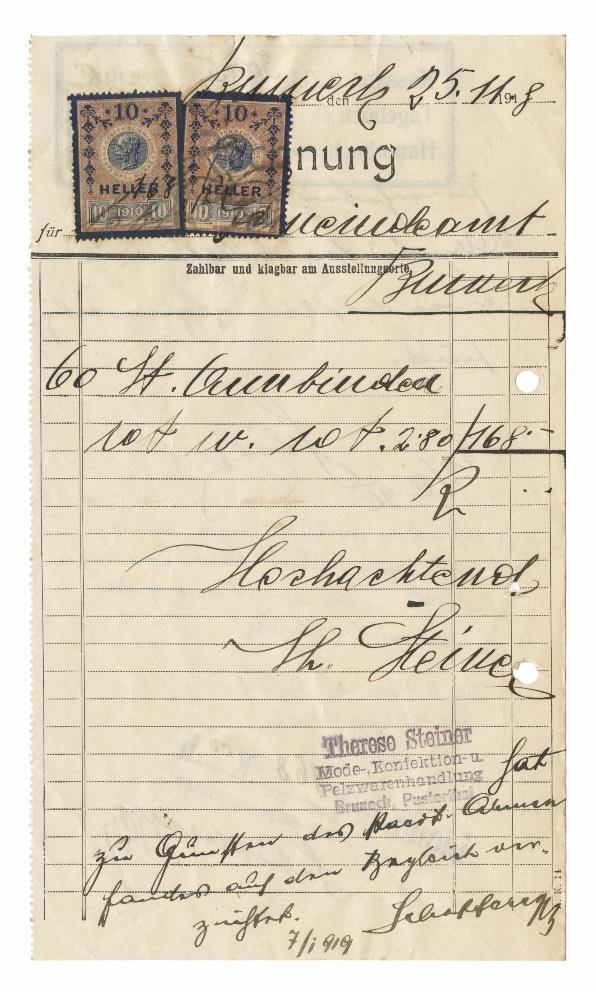 Bruneck den 25. 11. 1918
10 10
HELLER HELLER
10 1910 10 10 1910 10
nung
für Gemeindeamt
Zahlbar und klagbar am Ausstellungsorte.
Bruneck
60 St. Armbinden
rot w. rot. 2·80 168·-
Hochachtend
Th. Steiner
Therese Steiner
Mode-, Konfektion- u.
Pelzwarenhandlung
Bruneck, Pustertal
hat
zu Gunsten des Stadt-Armen
fondes auf den Begleich ver-
zichtet.
7/1 1919